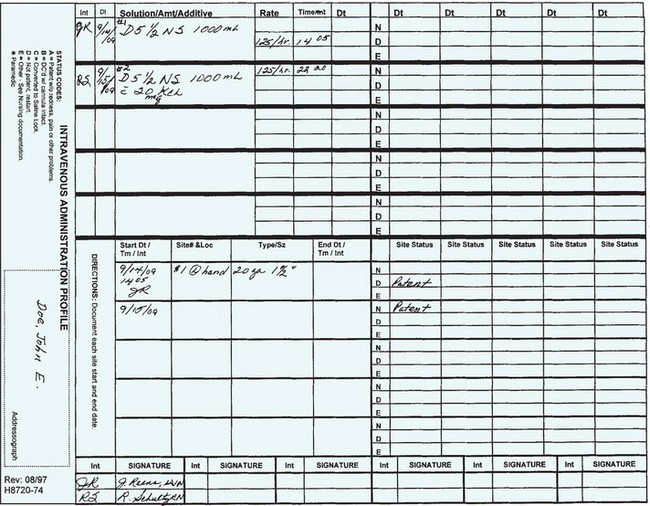 Int Dt Solution/Amt/Additive Rate Time/Int Dt Dt Dt Dt Dt
JR 9/14/09 #1 D5 1/2 NS 1000 mL 125/hr. 14 05
RS 9/15/09 #2 D5 1/2 NS 1000 mL 125/hr. 22 00
c̄ 20 KCL
mg
N
D
E
N
D
E
N
D
E
N
D
E
N
D
E
Start Dt / Tm / Int Site# &Loc Type/Sz End Dt / Tm / Int Site Status Site Status Site Status Site Status Site Status
9/14/09 #1 hand 20 ga
1405
JR
N
D Patent
E
9/15/09
N Patent
D
E
N
D
E
N
D
E
N
D
E
Int SIGNATURE Int SIGNATURE Int SIGNATURE Int SIGNATURE Int SIGNATURE
JR J.
RS R. Schultz RN
DIRECTIONS: Document each site start and end date.
INTRAVENOUS ADMINISTRATION PROFILE
STATUS CODES:
A = Patent w/o redness, pain or other problems.
B = DC'd w/ cannula intact.
C = Converted to Saline Lock.
D = Not patent, restart.
E = Other - See Nursing documentation.
* Paramedic
Doe, John E.
Addressograph
Rev: 08/97
H8720-74